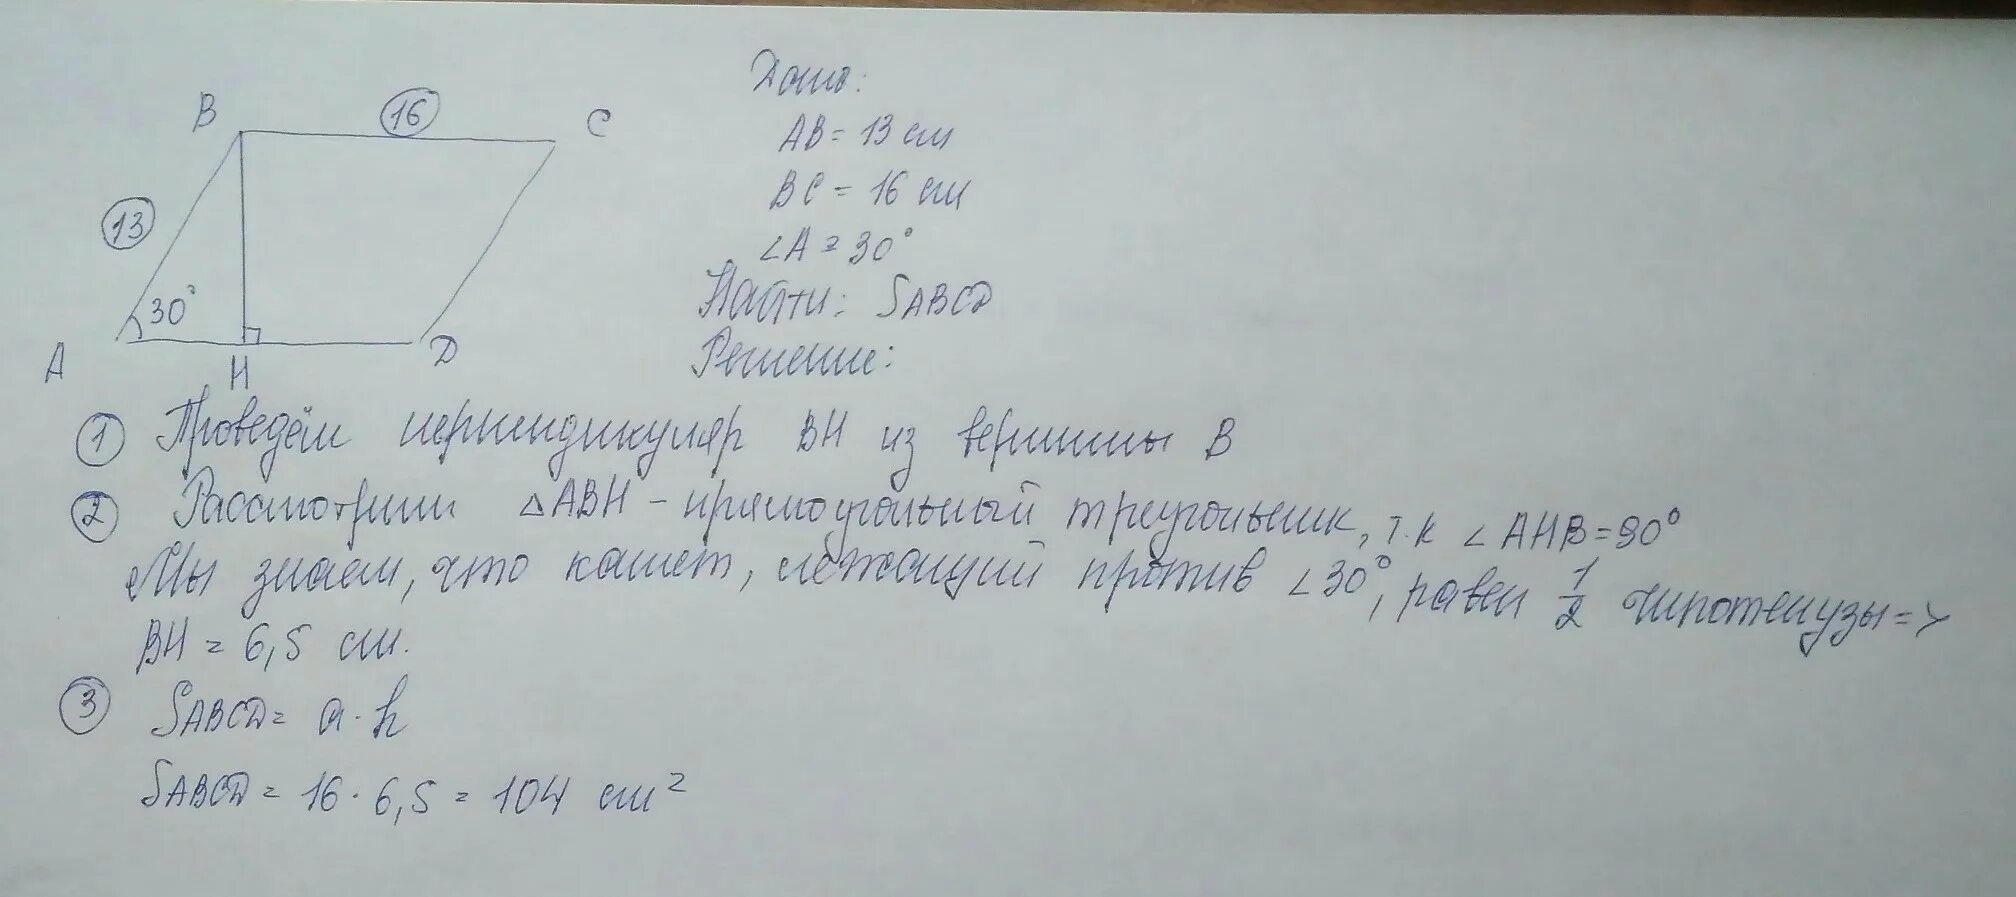 B
16
C
13
30°
A
H
D
Дано:
AB = 13 см
BC = 16 см
∠A = 30°
Найти: SABCD
Решение:
① Проведём перпендикуляр BH из вершины B
② Рассмотрим △ABH – прямоугольный треугольник, т.к ∠AHB = 90°
Мы знаем, что катет, лежащий против ∠30°, равен 1/2 гипотенузы =>
BH = 6,5 см.
③ SABCD = a · h
SABCD = 16 · 6,5 = 104 см²